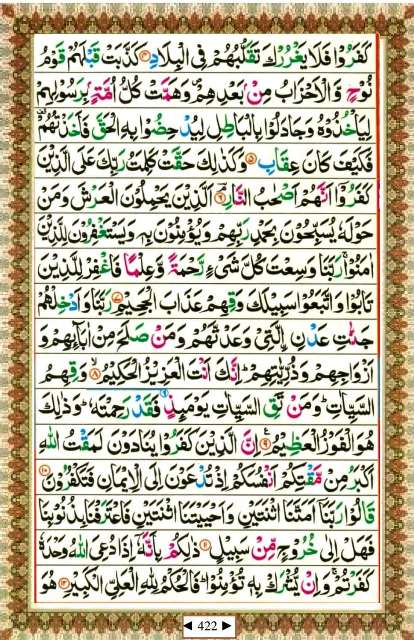 كَفَرُوْا فَلَا يَغْرُرْكَ تَقَلُّبُهُمْ فِى الْبِلَادِ ۝۴ كَذَّبَتْ قَبْلَهُمْ قَوْمُ
نُوْحٍ وَّالْاَحْزَابُ مِنْۢ بَعْدِهِمْ وَهَمَّتْ كُلُّ اُمَّةٍۭ بِرَسُوْلِهِمْ
لِيَاْخُذُوْهُ وَجَادَلُوْا بِالْبَاطِلِ لِيُدْحِضُوْا بِهِ الْحَقَّ فَاَخَذْتُهُمْ
فَكَيْفَ كَانَ عِقَابِ ۝۵ وَكَذٰلِكَ حَقَّتْ كَلِمَتُ رَبِّكَ عَلَى الَّذِيْنَ
كَفَرُوْۤا اَنَّهُمْ اَصْحٰبُ النَّارِ ۝۶ اَلَّذِيْنَ يَحْمِلُوْنَ الْعَرْشَ وَمَنْ
حَوْلَهٗ يُسَبِّحُوْنَ بِحَمْدِ رَبِّهِمْ وَيُؤْمِنُوْنَ بِهٖ وَيَسْتَغْفِرُوْنَ لِلَّذِيْنَ
اٰمَنُوْا ۚ رَبَّنَا وَسِعْتَ كُلَّ شَىْءٍ رَّحْمَةً وَّعِلْمًا فَاغْفِرْ لِلَّذِيْنَ
تَابُوْا وَاتَّبَعُوْا سَبِيْلَكَ وَقِهِمْ عَذَابَ الْجَحِيْمِ ۝۷ رَبَّنَا وَاَدْخِلْهُمْ
جَنّٰتِ عَدْنِ اِۨلَّتِىْ وَعَدْتَّهُمْ وَمَنْ صَلَحَ مِنْ اٰبَآئِهِمْ وَ
اَزْوَاجِهِمْ وَذُرِّيّٰتِهِمْ ؕ اِنَّكَ اَنْتَ الْعَزِيْزُ الْحَكِيْمُ ۝۸ وَقِهِمُ
السَّيِّاٰتِ ؕ وَمَنْ تَقِ السَّيِّاٰتِ يَوْمَئِذٍ فَقَدْ رَحِمْتَهٗ ؕ وَذٰلِكَ
هُوَ الْفَوْزُ الْعَظِيْمُ ۝۹ اِنَّ الَّذِيْنَ كَفَرُوْا يُنَادَوْنَ لَمَقْتُ اللّٰهِ
اَكْبَرُ مِنْ مَّقْتِكُمْ اَنْفُسَكُمْ اِذْ تُدْعَوْنَ اِلَى الْاِيْمَانِ فَتَكْفُرُوْنَ ۝۱۰
قَالُوْا رَبَّنَاۤ اَمَتَّنَا اثْنَتَيْنِ وَاَحْيَيْتَنَا اثْنَتَيْنِ فَاعْتَرَفْنَا بِذُنُوْبِنَا
فَهَلْ اِلٰى خُرُوْجٍ مِّنْ سَبِيْلٍ ۝۱۱ ذٰلِكُمْ بِاَنَّهٗۤ اِذَا دُعِىَ اللّٰهُ وَحْدَهٗ
كَفَرْتُمْ ۚ وَاِنْ يُّشْرَكْ بِهٖ تُؤْمِنُوْا ؕ فَالْحُكْمُ لِلّٰهِ الْعَلِىِّ الْكَبِيْرِ ۝۱۲ هُوَ
◄ 422 ►